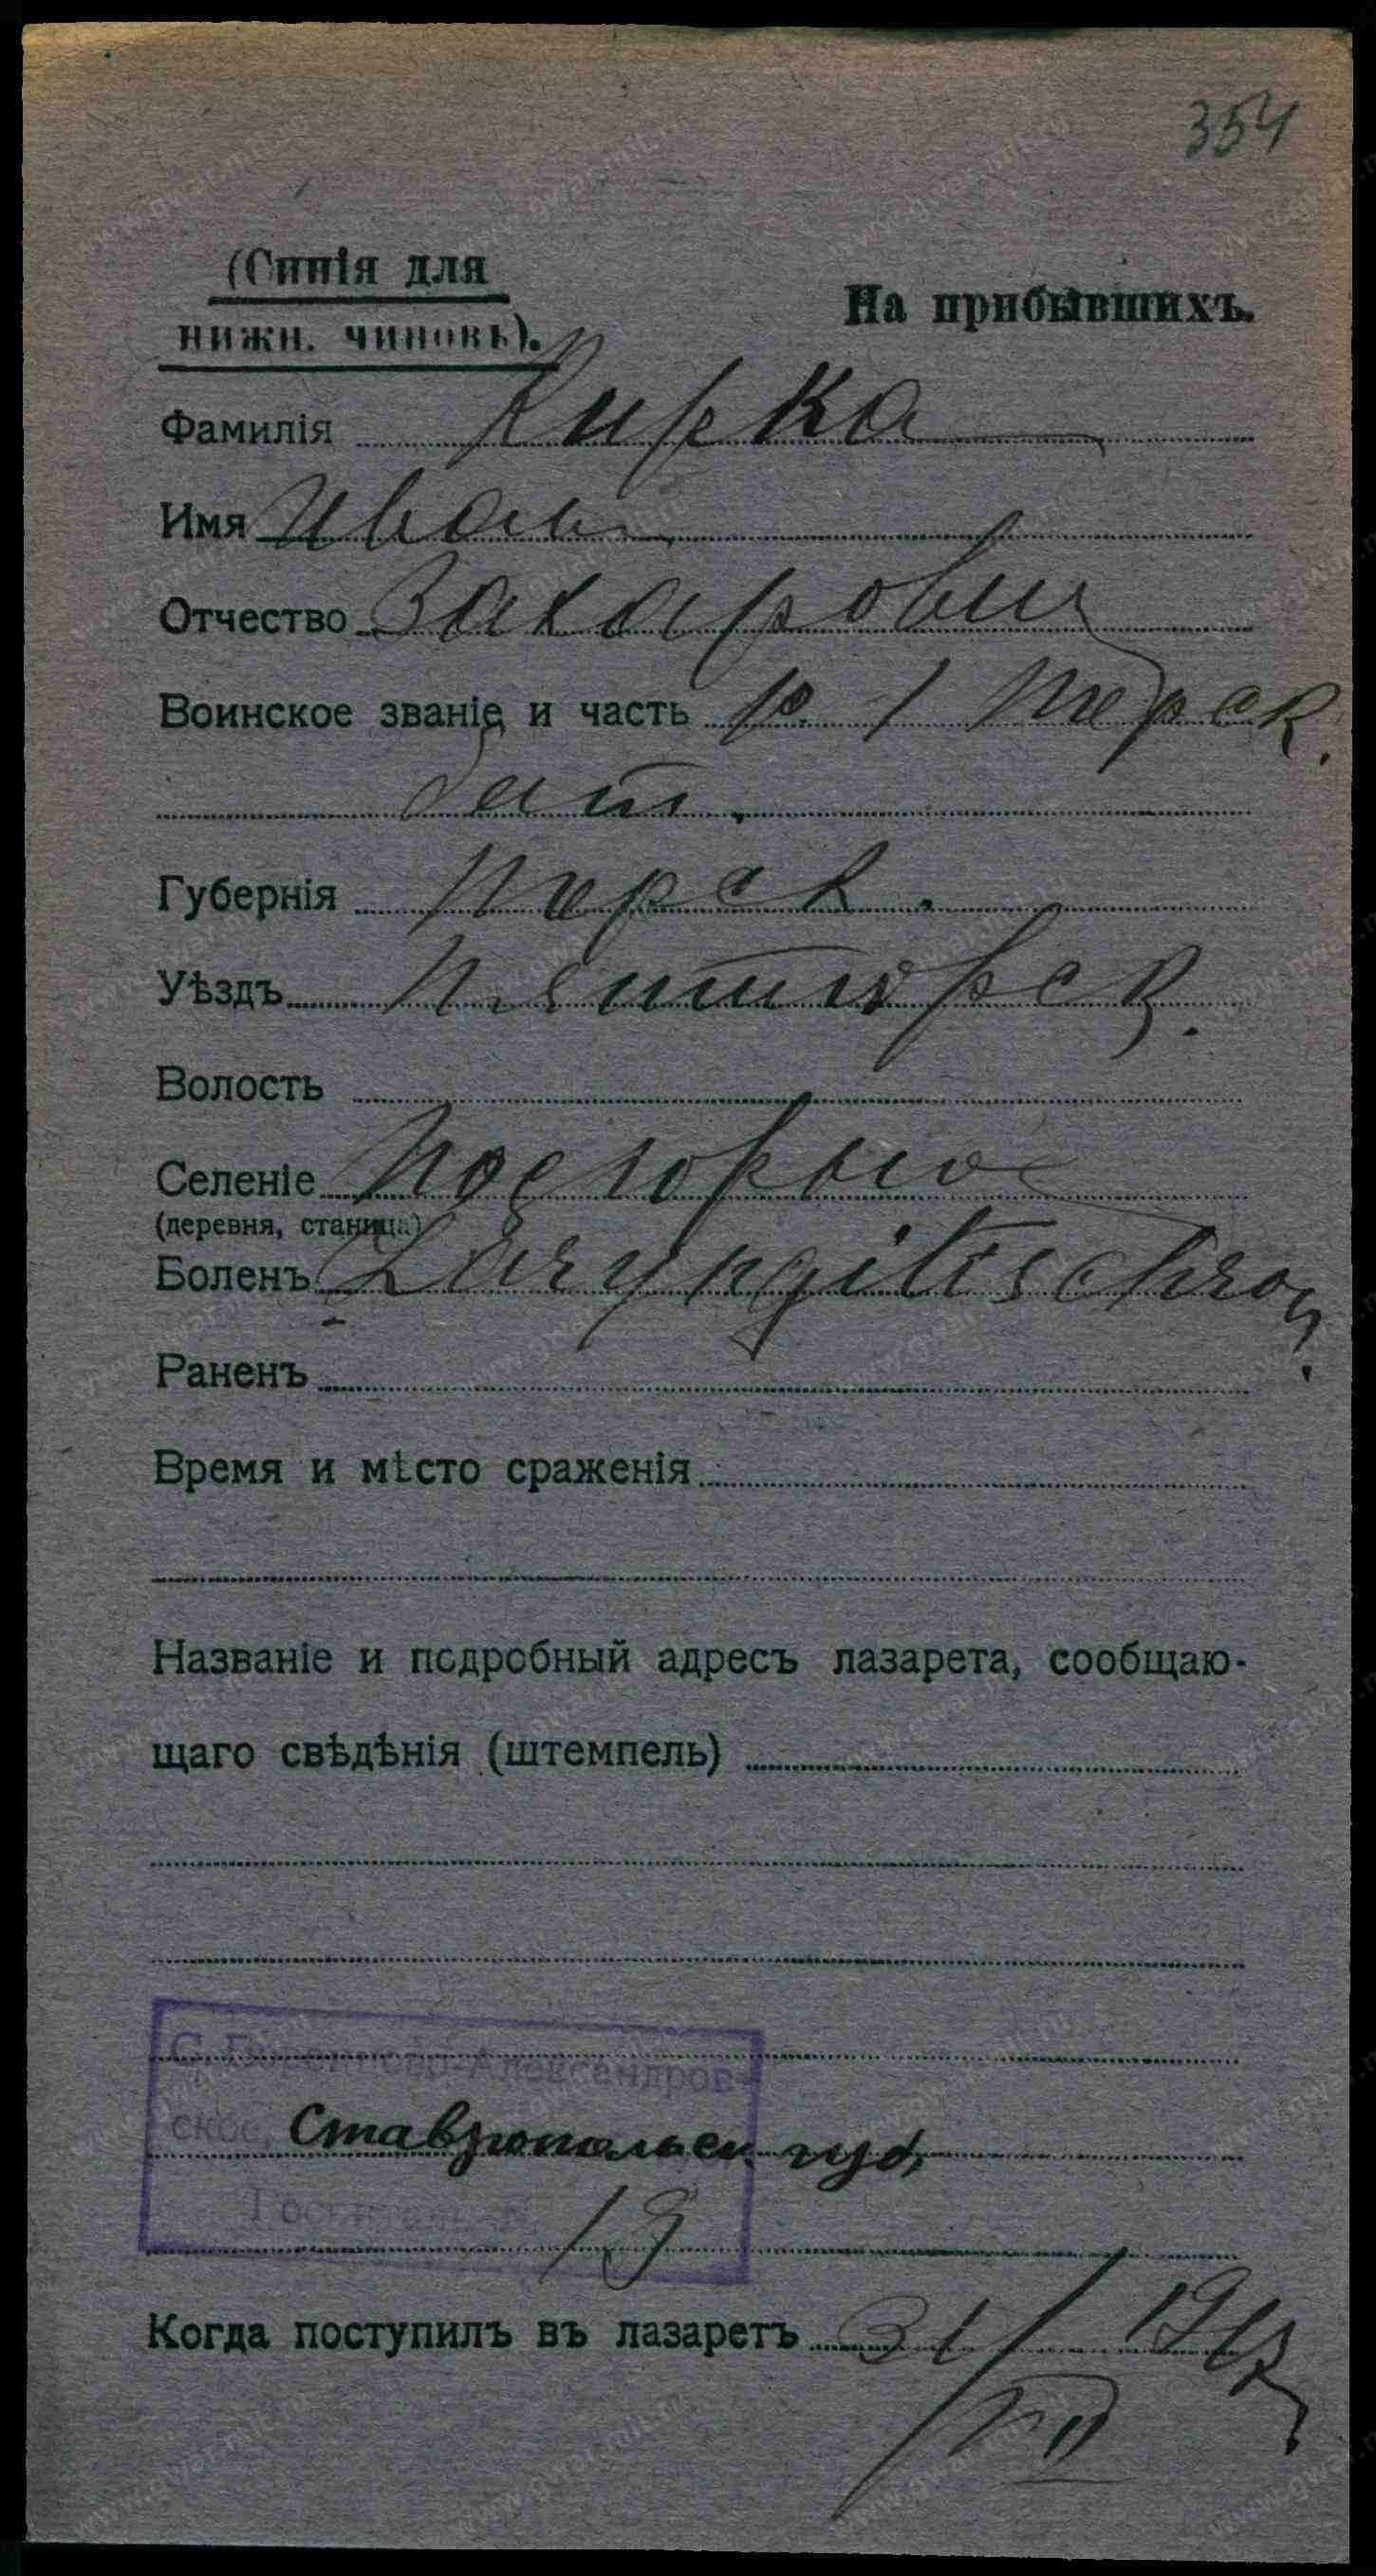 354
(Синія для
нижн. чиновъ).
На прибывшихъ.
Фамилія Кирка
Имя Иван
Отчество Захарович
Воинское званіе и часть р. 1 Терск.
бат.
Губернія Терск.
Уѣздъ Пятигорск.
Волость
Селеніе Подгорное
(деревня, станица)
Боленъ Laryngitis chron.
Раненъ
Время и мѣсто сраженія
Названіе и подробный адресъ лазарета, сообщаю-
щаго свѣдѣнія (штемпель)
Александров-
ское
Ставропольск. губ.
Когда поступилъ въ лазаретъ 31/VII